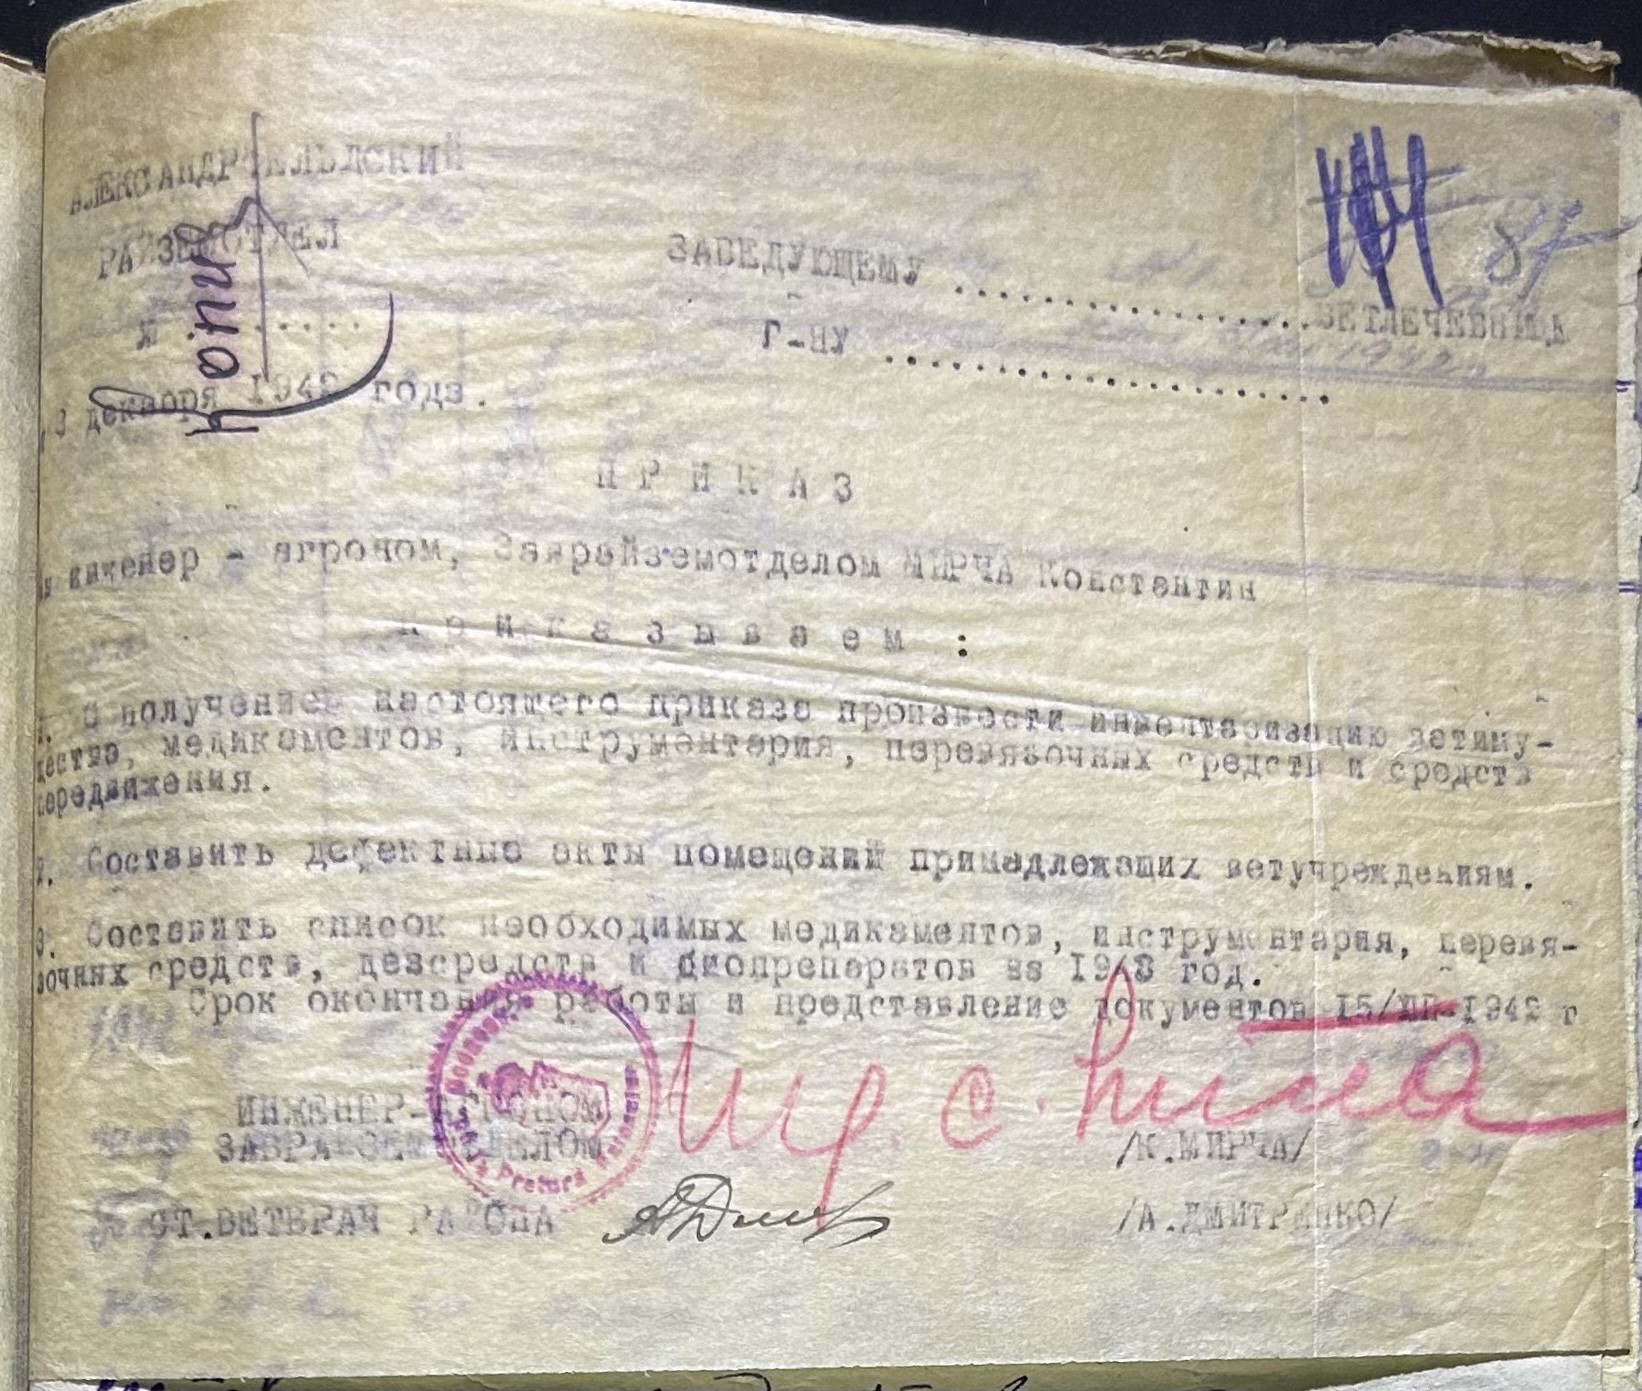 АЛЕКСАНДРФЕЛЬДСКИЙ
РАЙЗЕМОТДЕЛ
Копия
87
ЗАВЕДУЮЩЕМУ ..................... ВЕТЛЕЧЕБНИЦА
№ ......
Г-НУ .....................
3 декабря 1942 года.
П Р И К А З
инженер - агроном, Заврайземотделом МИРЧА Константин
П р и к а з ы в а е м :
1. С получением настоящего приказа произвести инвентаризацию ветиму-
щества, медикаментов, инструментария, перевязочных средств и средств
передвижения.
2. Составить дефектные акты помещений принадлежащих ветучреждениям.
3. Составить список необходимых медикаментов, инструментария, перевя-
зочных средств, дезсредств и биопрепаратов на 1943 год.
Срок окончания работы и представление документов 15/XII-1942 г
ИНЖЕНЕР-АГРОНОМ
ЗАВРАЙЗЕМОТДЕЛОМ /К.МИРЧА/
СТ.ВЕТВРАЧ РАЙОНА /А.ДМИТРЕНКО/